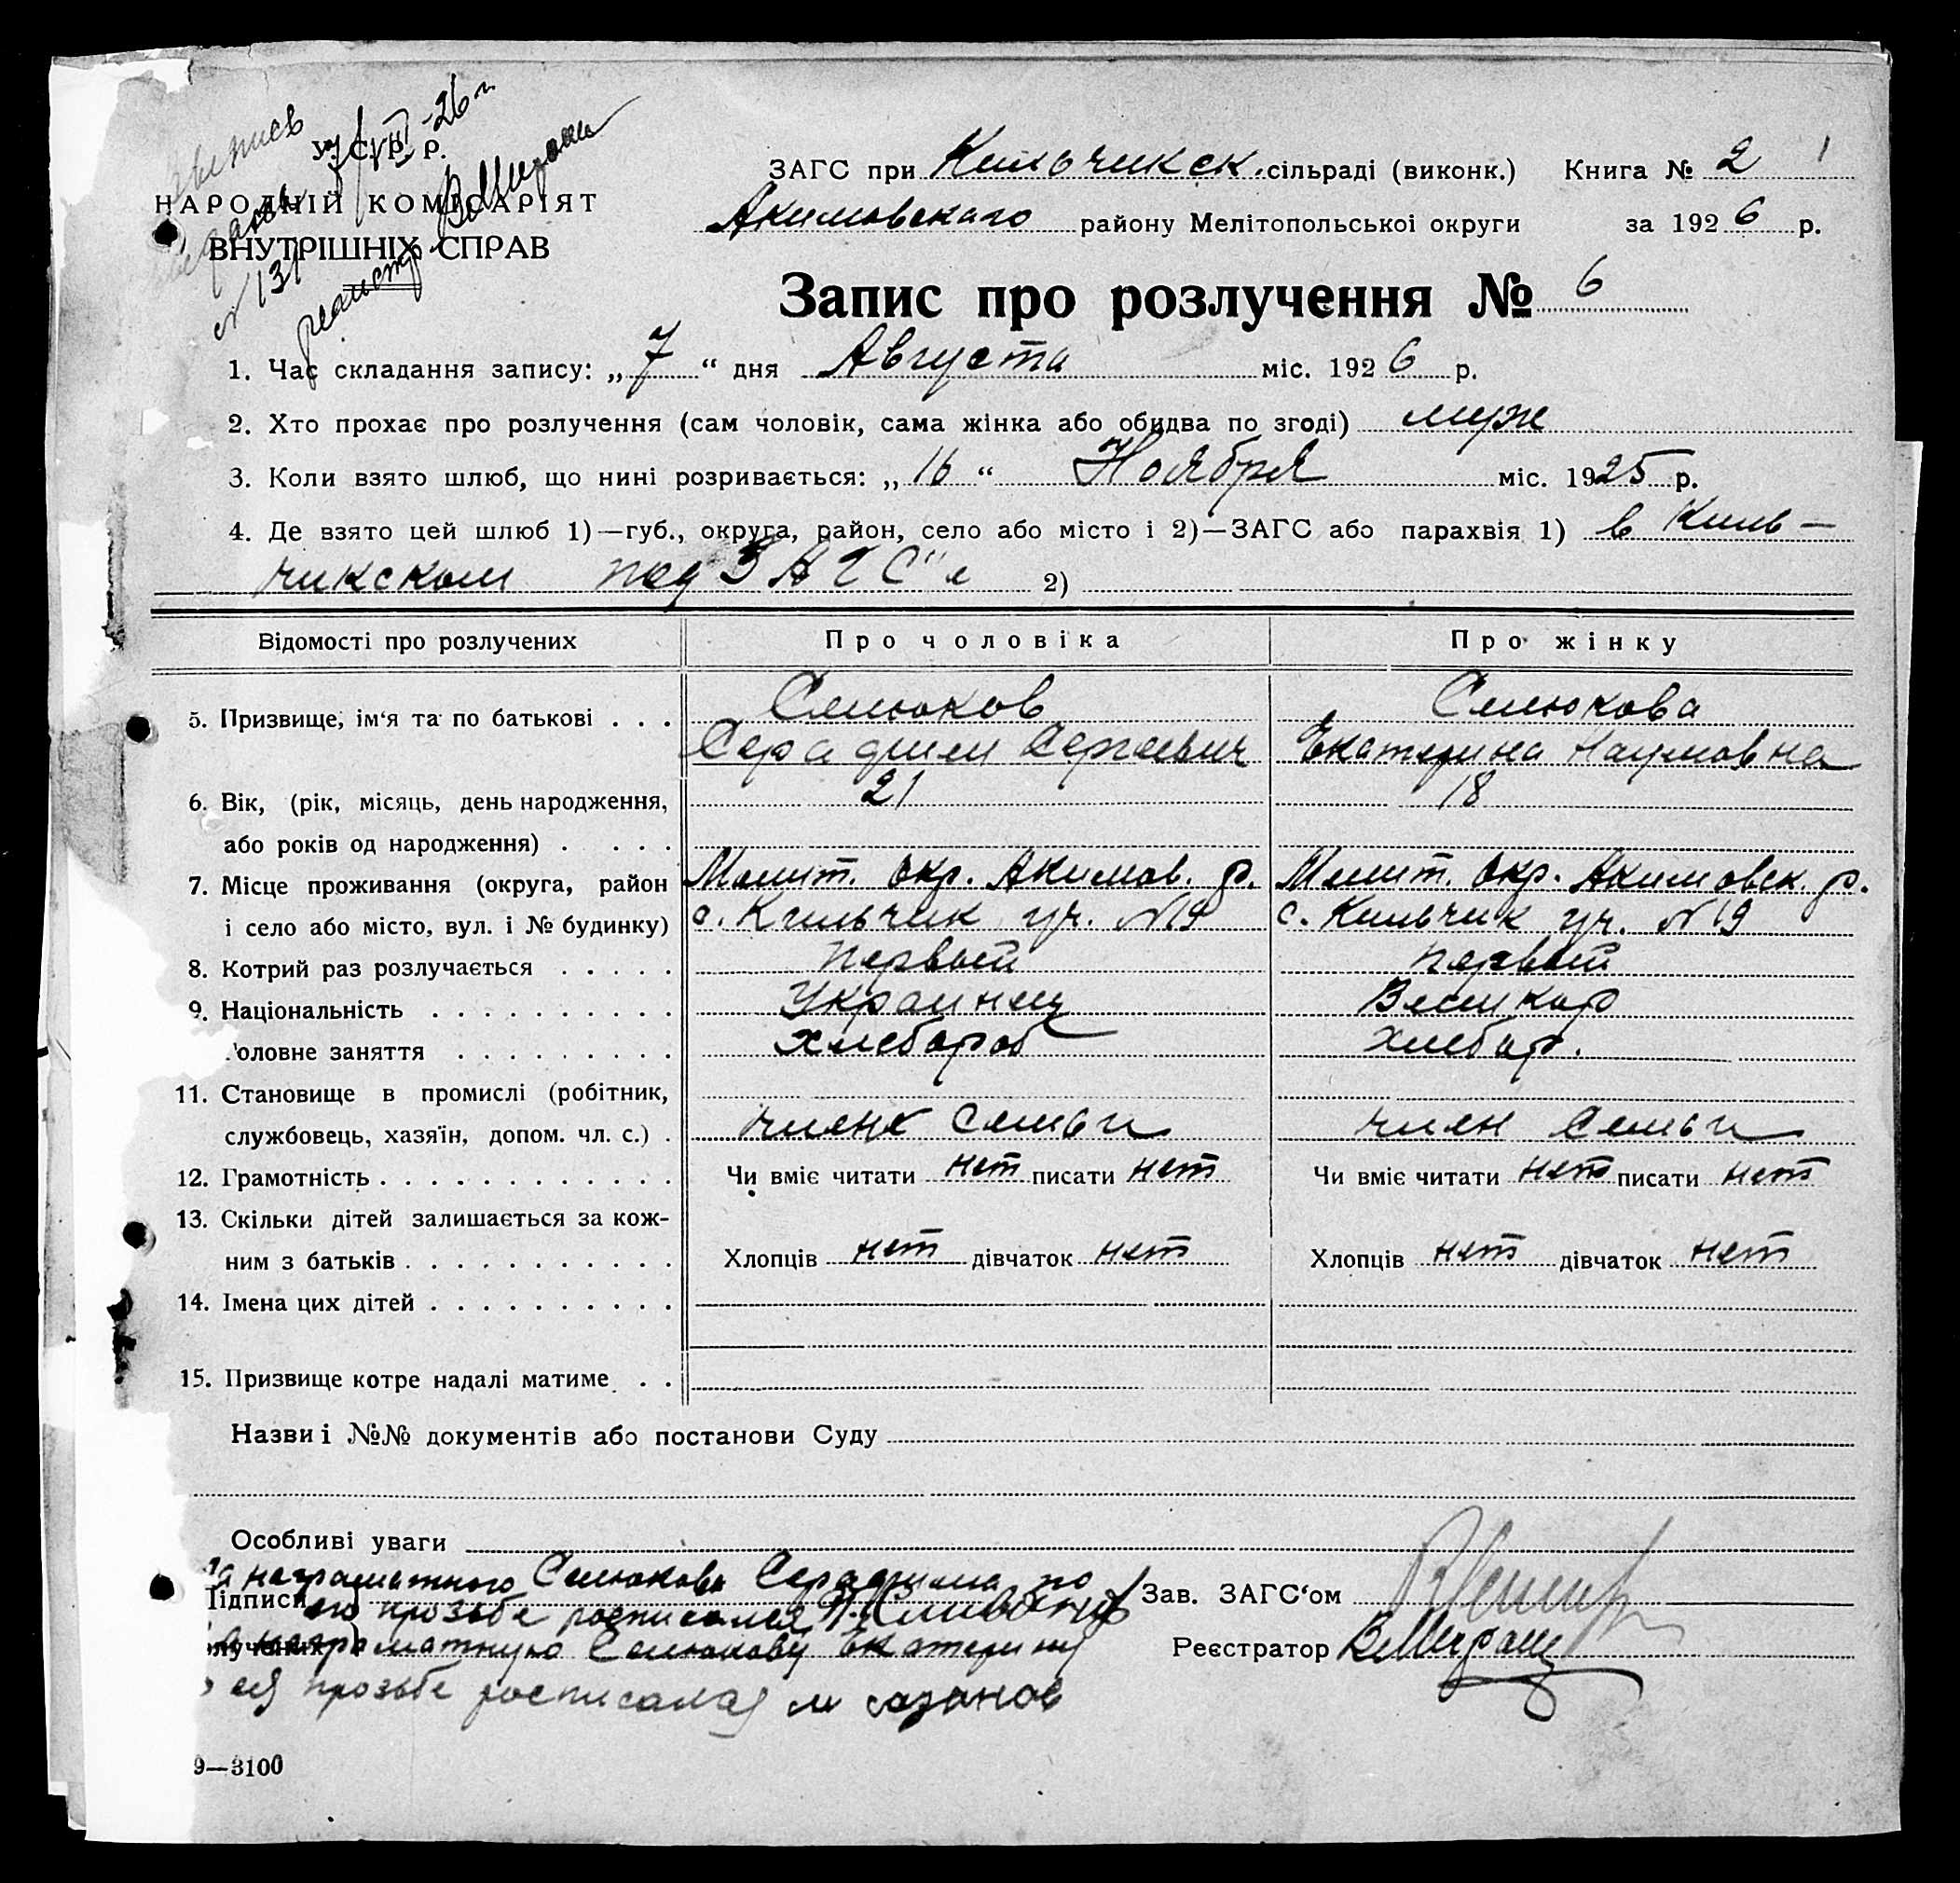 У. С. Р. Р.
7/VIII-26 г.
НАРОДНІЙ КОМІСАРІЯТ
ВНУТРІШНІХ СПРАВ
N 131
ЗАГС при Кильчикск. сільраді (виконк.) Книга № 2 1
Акимовскаго району Мелітопольскоі округи за 1926 р.
Запис про розлучення № 6
1. Час складання запису: „7“ дня Августа міс. 1926 р.
2. Хто прохає про розлучення (сам чоловік, сама жінка або обидва по згоді) муж
3. Коли взято шлюб, що нині розривається: „16“ Ноября міс. 1925 р.
4. Де взято цей шлюб 1)—губ., округа, район, село або місто і 2)—ЗАГС або парахвія 1) в Киль-
чикском под ЗАГС"е 2)
Відомості про розлучених Про чоловіка Про жінку
5. Призвище, ім'я та по батькові . . . Селюков Селюкова
Серафим Сергеевич Екатерина Наумовна
6. Вік, (рік, місяць, день народження, 21 18
або років од народження) . . . . .
7. Місце проживання (округа, район Мелит. окр. Акимов. р. Мелит. окр. Акимовск. р.
і село або місто, вул. і № будинку) с. Кильчик уч. N19 с. Кильчик уч. N19
8. Котрий раз розлучається . . . . . Первый Первый
9. Національність . . . . . . . . . . Украинец Великор
Головне заняття . . . . . . . . . Хлебороб Хлебор.
11. Становище в промислі (робітник,
службовець, хазяїн, допом. чл. с.) . член семьи член семьи
12. Грамотність . . . . . . . . . . . . Чи вміє читати нет писати нет Чи вміє читати нет писати нет
13. Скільки дітей залишається за кож-
ним з батьків . . . . . . . . . . . Хлопців нет дівчаток нет Хлопців нет дівчаток нет
14. Імена цих дітей . . . . . . . . . .
15. Призвище котре надалі матиме . .
Назви і №№ документів або постанови Суду
Особливі уваги
За неграматного Селюкова Серафима по
Підписи его прозьбе росписался Зав. ЗАГС'ом
неграматную Селюкову Екатерину Реєстратор
ея прозьбе росписалая м сазонов
9—3100